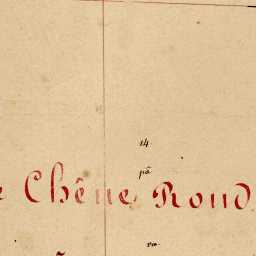 14
pã
e Chêne Rond